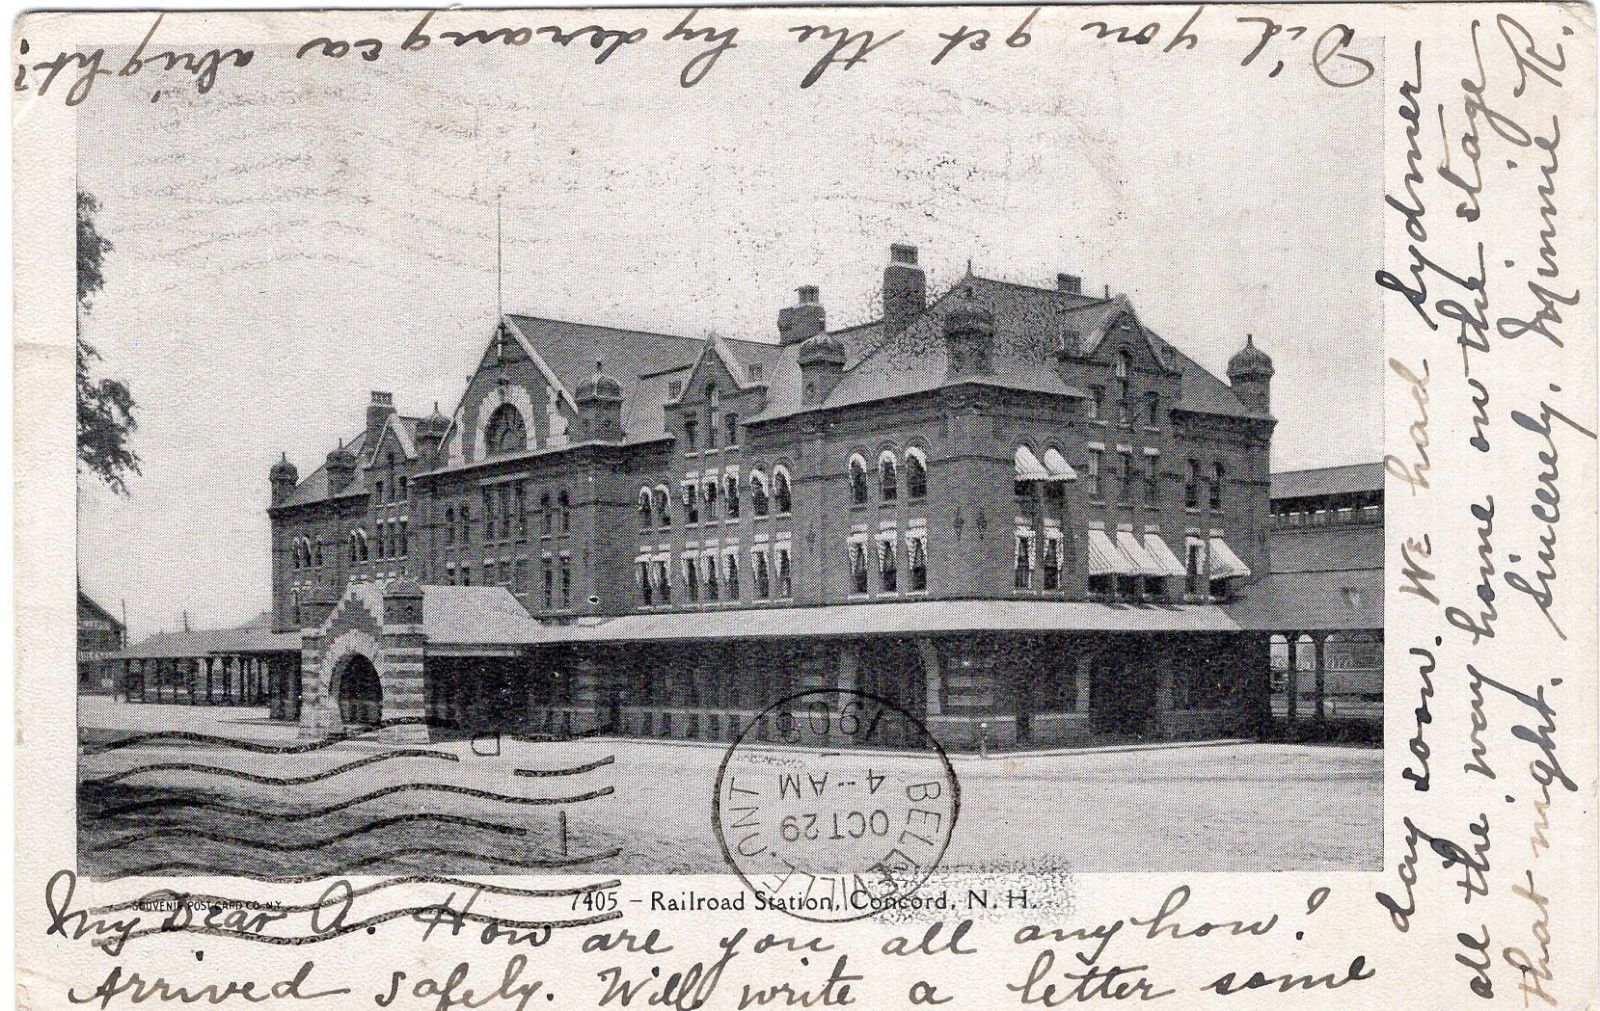 My Dear A. How are you all anyhow?
Arrived safely. Will write a letter some
day soon. We had Sydner
all the way home on the stage
that night. Sincerely, Minnie R.
Did you get the hyderangea alright?
7405 – Railroad Station, Concord, N. H.
SOUVENIR POST CARD CO. N.Y.
BELLEVILLE, ONT
OCT 29
4--AM
D
1